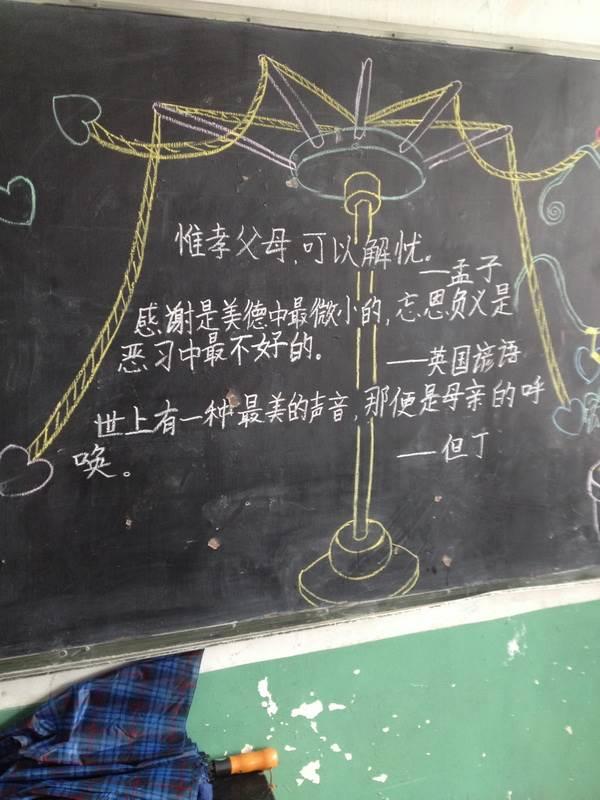 惟孝父母,可以解忧。
—孟子
感谢是美德中最微小的,忘恩负义是
恶习中最不好的。
—英国谚语
世上有一种最美的声音,那便是母亲的呼
唤。
—但丁